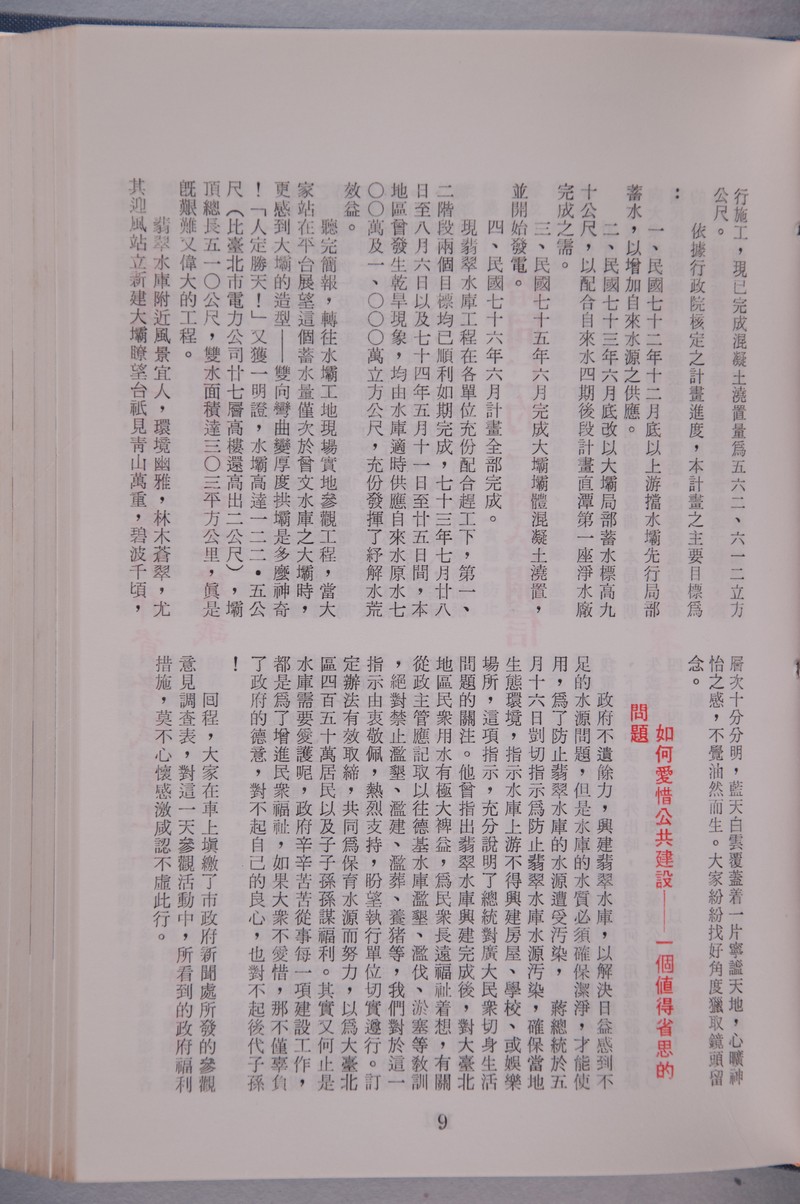 行施工，現已完成混凝土澆置量爲五六二、六一二立方
公尺。
依據行政院核定之計畫進度，本計畫之主要目標爲
：
一、民國七十二年十二月底以上游擋水壩先行局部
蓄水，以增加自來水源之供應。
二、民國七十三年六月底改以大壩局部蓄水標高九
十公尺，以配合自來水四期後段計畫直潭第一座淨水廠
完成之需。
三、民國七十五年六月完成大壩壩體混凝土澆置，
並開始發電。
四、民國七十六年六月計畫全部完成。
現翡翠水庫工程在各單位充份配合趕工下，第一、
二階段兩個目標均已順利如期完成，七十三年七月廿八
日至八月六日以及七十四年五月十一日至廿五日間，本
地區曾發生乾旱現象，均由水庫適時供應自來水原水七
〇〇萬及一、〇〇〇萬立方公尺，充份發揮了紓解水荒
效益。
聽完簡報，轉往水壩工地現場實地參觀工程，當大
家站在平台展望這個蓄水量僅次於曾文水庫之大壩時，
更感到大壩的造型——雙向彎曲變厚度拱壩是多麼神奇
！「人定勝天！」又獲一明證，水壩高達一二二•五公
尺（比臺北市電力公司廿七層高樓還高出二公尺），壩
頂總長五一〇公尺，雙水面積達三〇三平方公里，眞是
旣艱難又偉大的工程。
翡翠水庫附近風景宜人，環境幽雅，林木蒼翠，尤
其迎風站立新建大壩瞭望台祇見靑山萬重，碧波千頃，
層次十分分明，藍天白雲覆蓋着一片寧謐天地，心曠神
怡之感，不覺油然而生。大家紛紛找好角度獵取鏡頭留
念。
如何愛惜公共建設——一個値得省思的
問題
政府不遺餘力，興建翡翠水庫，以解決日益感到不
足的水源問題，但是水庫的水質必須確保潔淨，才能使
用，爲了防止翡翠水庫的水源遭受汚染，　蔣總統於五
月十六日剴切指示爲防止翡翠水庫水源汚染，確保當地
生態環境，指示水庫上游不得興建房屋、學校、或娛樂
場所，這項指示，充分說明了總統對廣大民衆切身生活
問題的關注。他曾指出翡翠水庫興建完成後，對大臺北
地區民衆用水有極大裨益，爲民衆長遠福祉着想，有關
從政主管應記取以往德基水庫濫墾、濫伐、淤塞等敎訓
，絕對禁止濫墾、濫建、濫葬、養猪等，我們對於這一
指示由衷敬佩，熱烈支持，盼望執行單位切實遵行。訂
定辦法有效取締，共同爲保育水源而努力，以爲大臺北
區四百五十萬居民以及子子孫孫謀福利。其實又何止是
水庫需要愛護呢，政府辛辛苦苦從事每一項建設工作，
都是爲了增進民衆福祉，如果大衆不愛惜，那不僅辜負
了政府的德意，對不起自己的良心，也對不起後代子孫
！
回程，大家在車上塡繳了市政府新聞處所發的參觀
意見調查表，對這一天參觀活動中，所看到的政府福利
措施，莫不心懷感激咸認不虛此行。
9